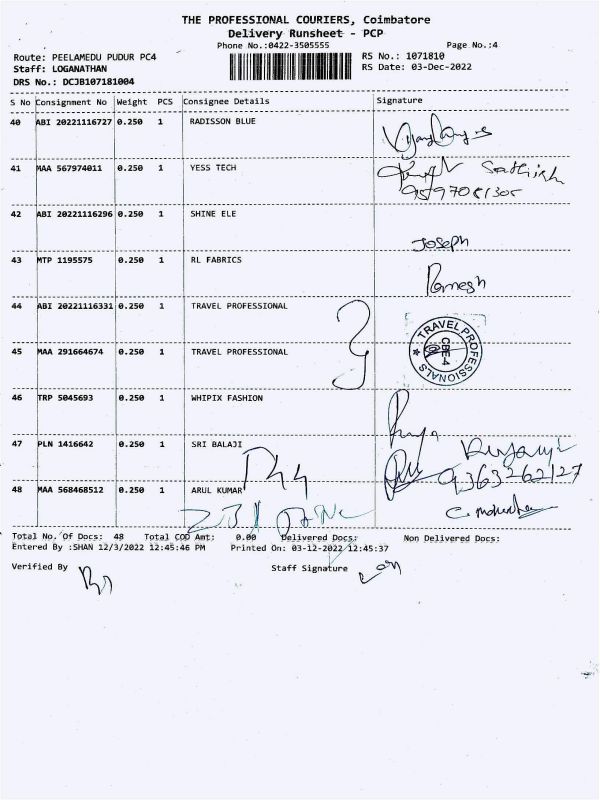 THE PROFESSIONAL COURIERS, Coimbatore
Delivery Runsheet - PCP
Phone No.:0422-3505555 Page No.:4
Route: PEELAMEDU PUDUR PC4 RS No.: 1071810
Staff: LOGANATHAN RS Date: 03-Dec-2022
DRS No.: DCJB107181004
S No Consignment No Weight PCS Consignee Details Signature
40 ABI 20221116727 0.250 1 RADISSON BLUE
41 MAA 567974011 0.250 1 YESS TECH Sathish
42 ABI 20221116296 0.250 1 SHINE ELE
Joseph
43 MTP 1195575 0.250 1 RL FABRICS
Ramesh
44 ABI 20221116331 0.250 1 TRAVEL PROFESSIONAL
TRAVEL PROFESSIONALS
CBE-4
45 MAA 291664674 0.250 1 TRAVEL PROFESSIONAL
46 TRP 5045693 0.250 1 WHIPIX FASHION
47 PLN 1416642 0.250 1 SRI BALAJI
9363262127
48 MAA 568468512 0.250 1 ARUL KUMAR
Total No. Of Docs: 48 Total COD Amt: 0.00 Delivered Docs: Non Delivered Docs:
Entered By :SHAN 12/3/2022 12:45:46 PM Printed On: 03-12-2022 12:45:37
Verified By Staff Signature